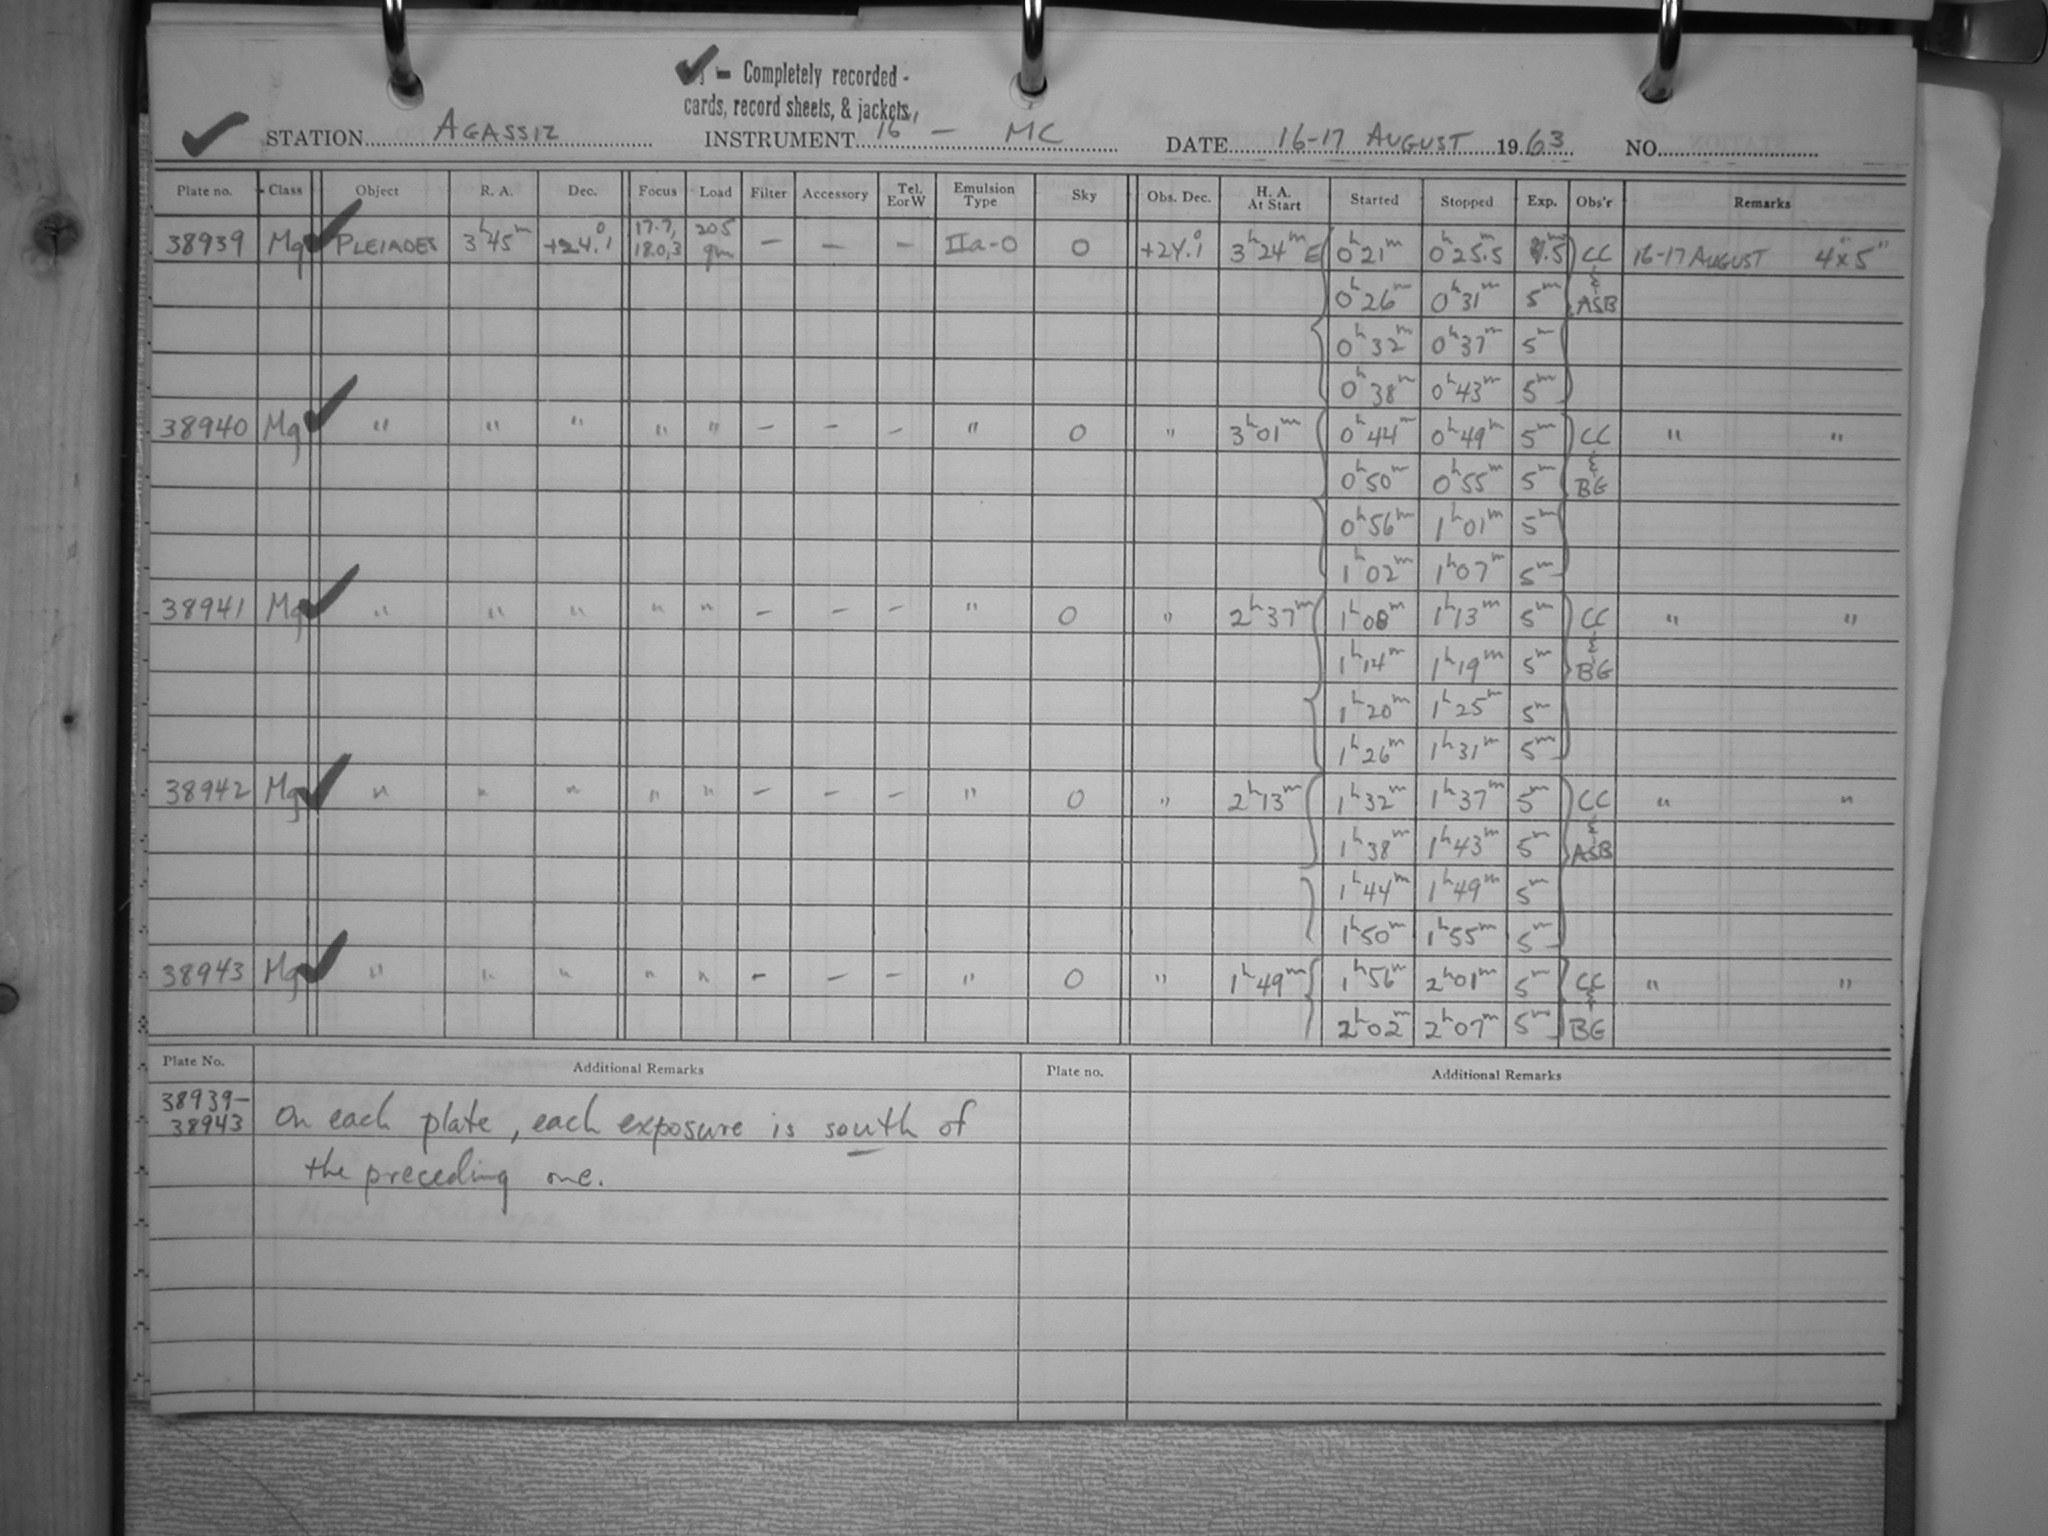 ✓ = Completely recorded -
cards, record sheets, & jackets
STATION AGASSIZ INSTRUMENT 16" - MC DATE 16-17 AUGUST 1963 NO.
Plate no. Class Object R. A. Dec. Focus Load Filter Accessory Tel. E or W Emulsion Type Sky Obs. Dec. H. A. At Start Started Stopped Exp. Obs'r Remarks
38939 Mg ✓ PLEIADES 3h45m +24.°1 17.7, 18.0,3 205 gm — — — IIa-O 0 +24.°1 3h24m E 0h21m 0h25.5m 4.5m CC 16-17 AUGUST 4"x5"
0h26m 0h31m 5m & ASB
0h32m 0h37m 5m
0h38m 0h43m 5m
38940 Mg ✓ " " " " " — — — " 0 " 3h01m 0h44m 0h49m 5m CC " "
0h50m 0h55m 5m & BG
0h56m 1h01m 5m
1h02m 1h07m 5m
38941 Mg ✓ " " " " " — — — " 0 " 2h37m 1h08m 1h13m 5m CC " "
1h14m 1h19m 5m & BG
1h20m 1h25m 5m
1h26m 1h31m 5m
38942 Mg ✓ " " " " " — — — " 0 " 2h13m 1h32m 1h37m 5m CC " "
1h38m 1h43m 5m & ASB
1h44m 1h49m 5m
1h50m 1h55m 5m
38943 Mg ✓ " " " " " — — — " 0 " 1h49m 1h56m 2h01m 5m CC " "
2h02m 2h07m 5m & BG
Plate No. Additional Remarks Plate no. Additional Remarks
38939-
38943 On each plate, each exposure is south of
the preceding one.